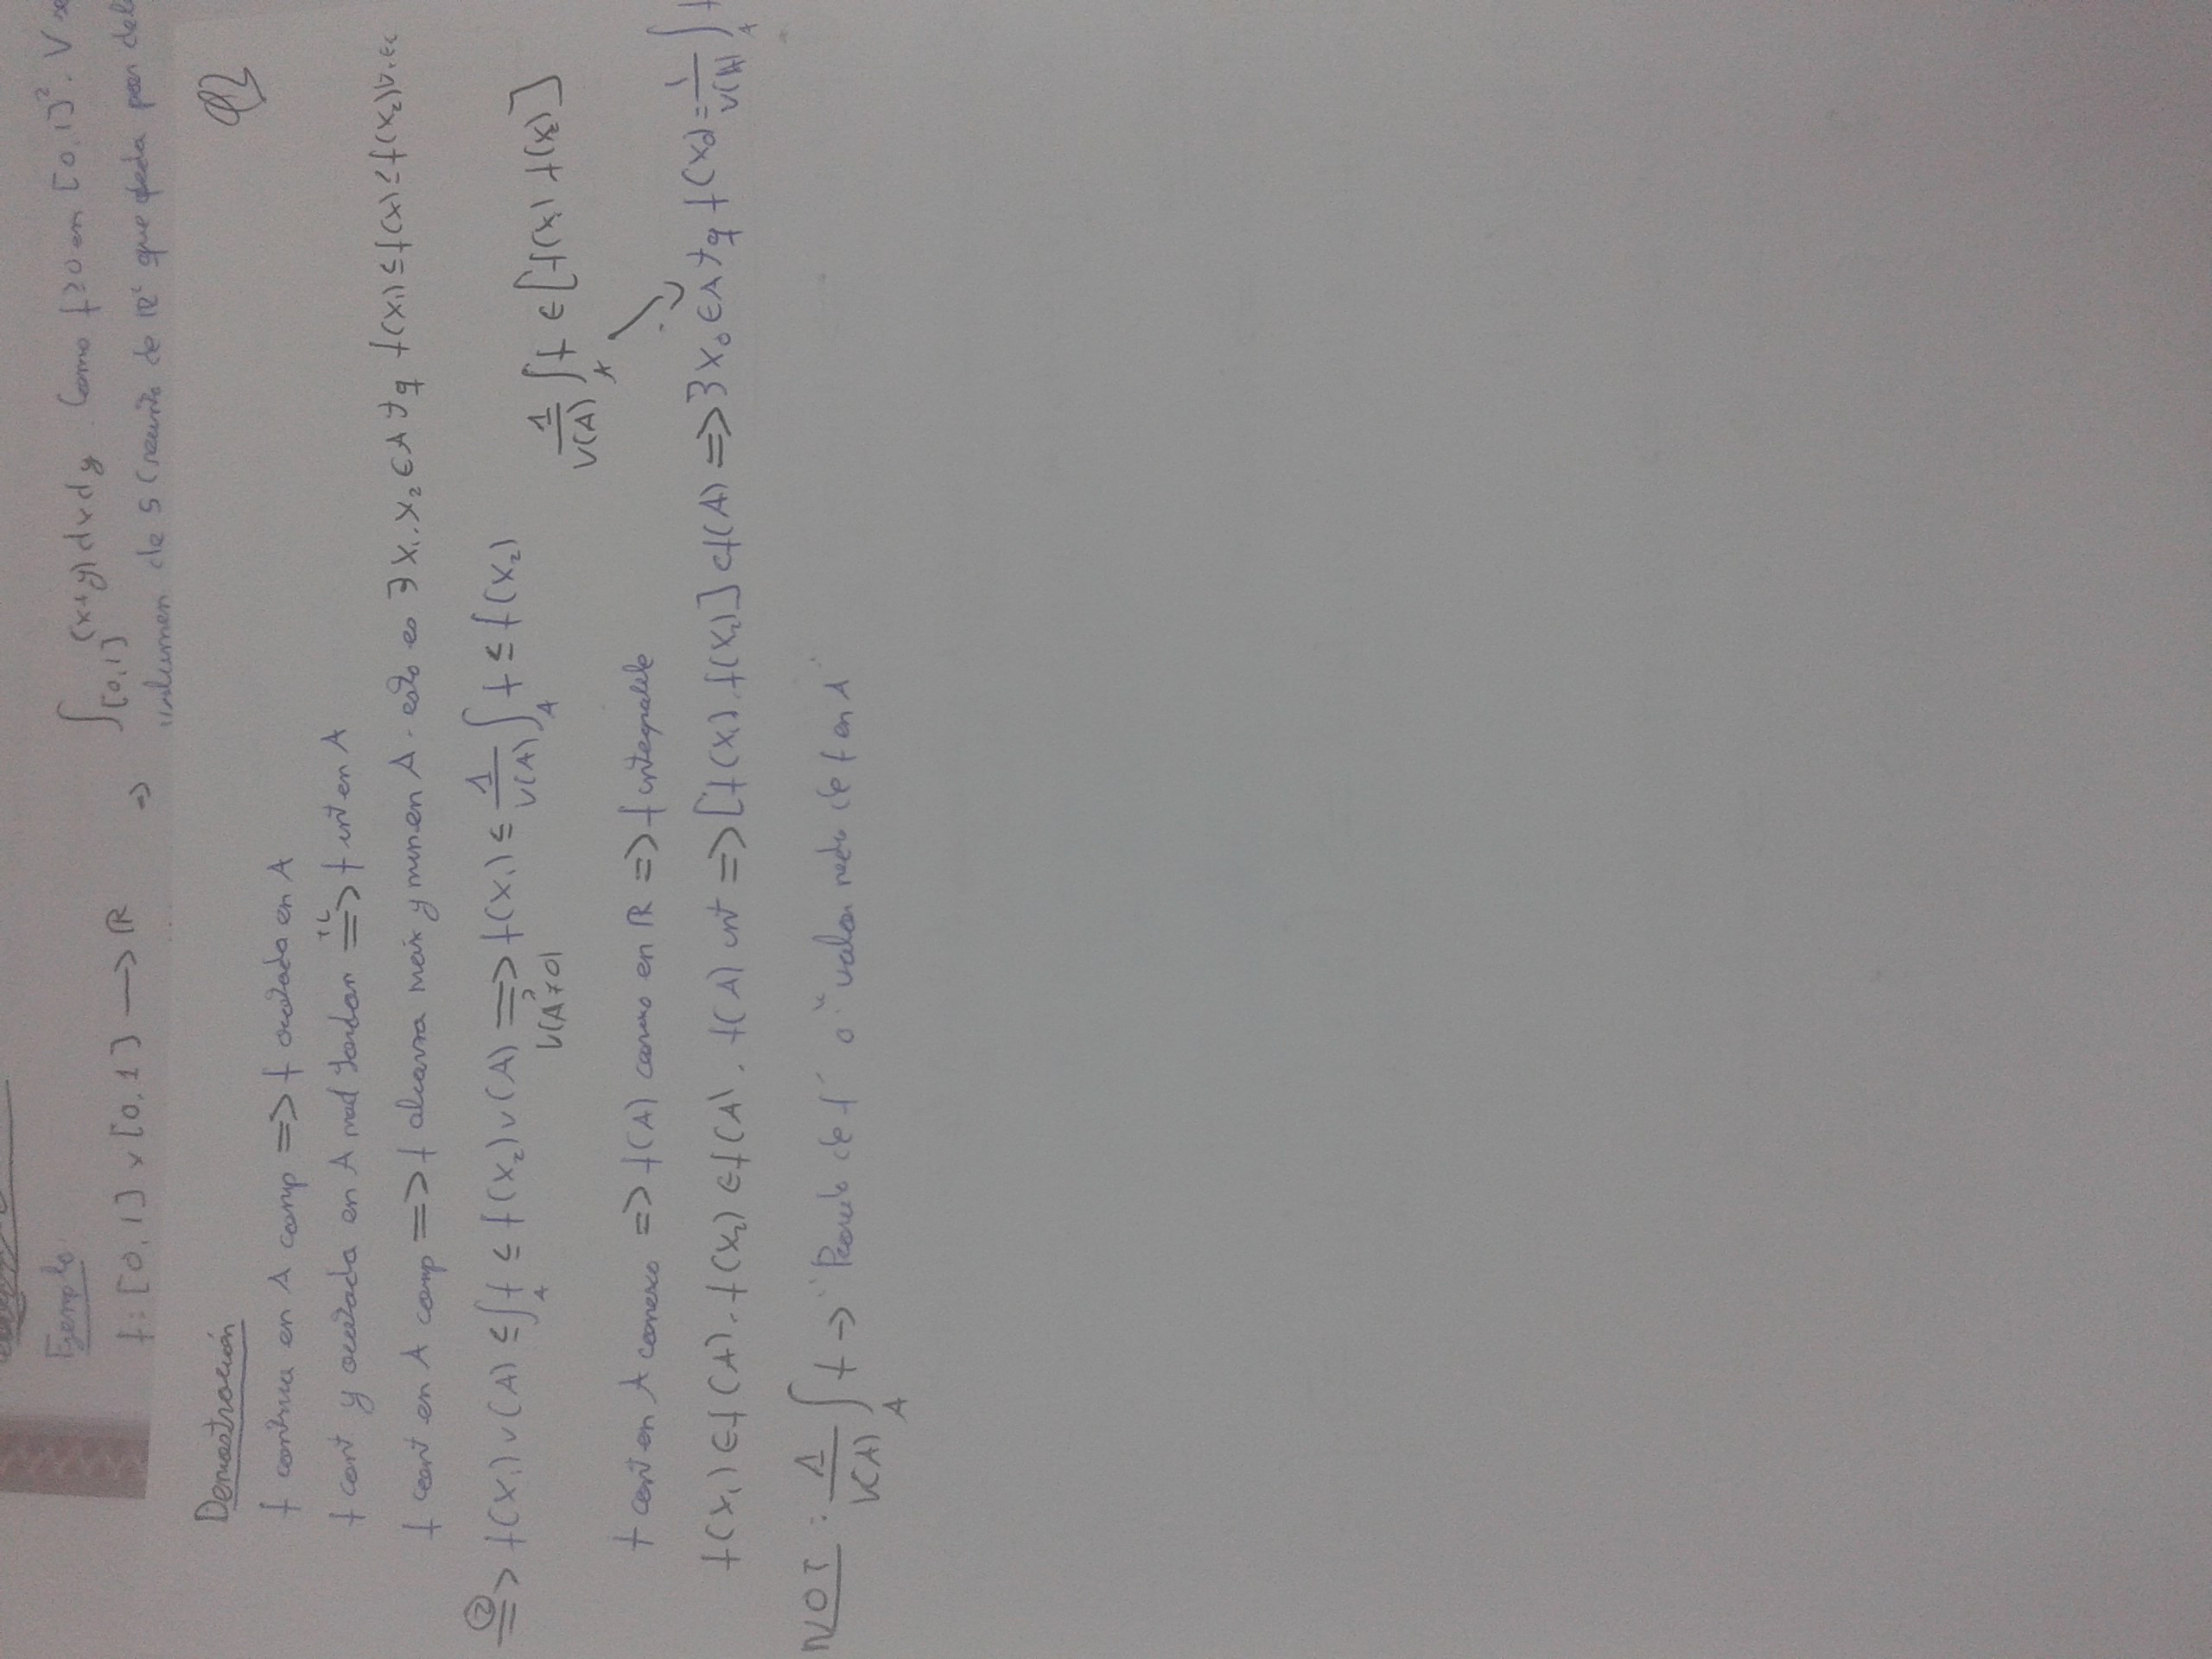 Ejemplo
f: [0,1] x [0,1] → R ⇒ ∫[0,1] (x+y) dx dy. Como f≥0 en [0,1]². V
volumen de S ( de R que queda por
Demostración
f continua en A comp => f acotada en A
f cont y acotada en A med Jordan => f int en A
f cont en A comp => f alcanza máx y min en A. esto es ∃ x₁, x₂ ∈ A tq f(x₁) ≤ f(x) ≤ f(x₂)
②=> f(x₁) v(A) ≤ ∫_A f ≤ f(x₂) v(A) => f(x₁) ≤ 1/v(A) ∫_A f ≤ f(x₂)
v(A)≠0
1/v(A) ∫_A f ∈ [f(x₁) f(x₂)]
f cont en A conexo => f(A) conexo en R => f integrable
f(x₁) ∈ f(A), f(x₂) ∈ f(A), f(A) int => [f(x₁), f(x₂)] c f(A) => ∃ x₀ ∈ A tq f(x₀) = 1/v(A) ∫_A f
NOT: 1/v(A) ∫_A f → " de f" o "valor medio de f en A"